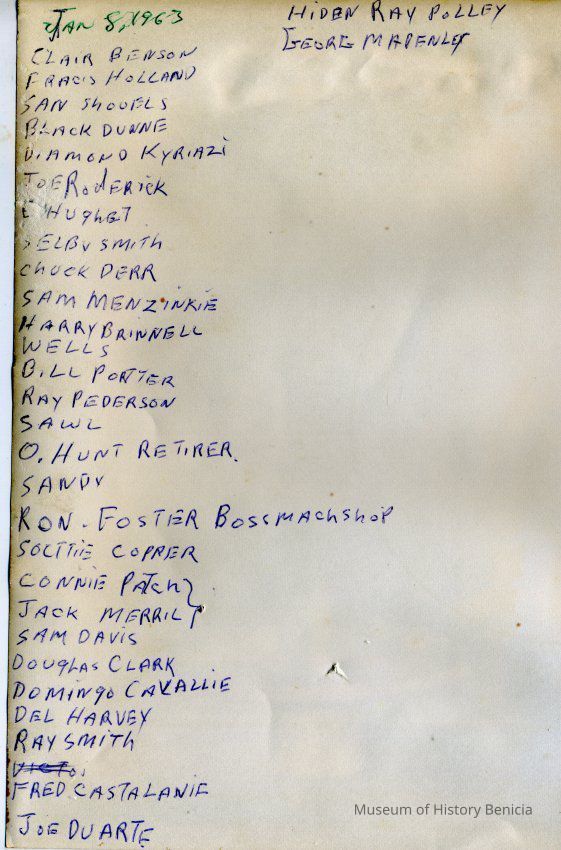 Jan 8, 1963
CLAIR BENSON
FRACIS HOLLAND
SAN SHOVELS
BLACK DUNNE
DIAMOND KYRIAZI
JOE RODERICK
E HUGHET
SELBY SMITH
CHUCK DERR
SAM MENZINKIE
HARRY BRINNELL
WELLS
BILL PORTER
RAY PEDERSON
SAWL
O. HUNT RETIRER.
SANDY
RON. FOSTER BOSSMACHSHOP
SOCTTIE COPPER
CONNIE PATCH
JACK MERRIL
SAM DAVIS
DOUGLAS CLARK
DOMINGO CAVALLIE
DEL HARVEY
RAY SMITH
FRED CASTALANIE
JOE DUARTE
HIDEN RAY POLLEY
GEORG MAPENLEY
Museum of History Benicia